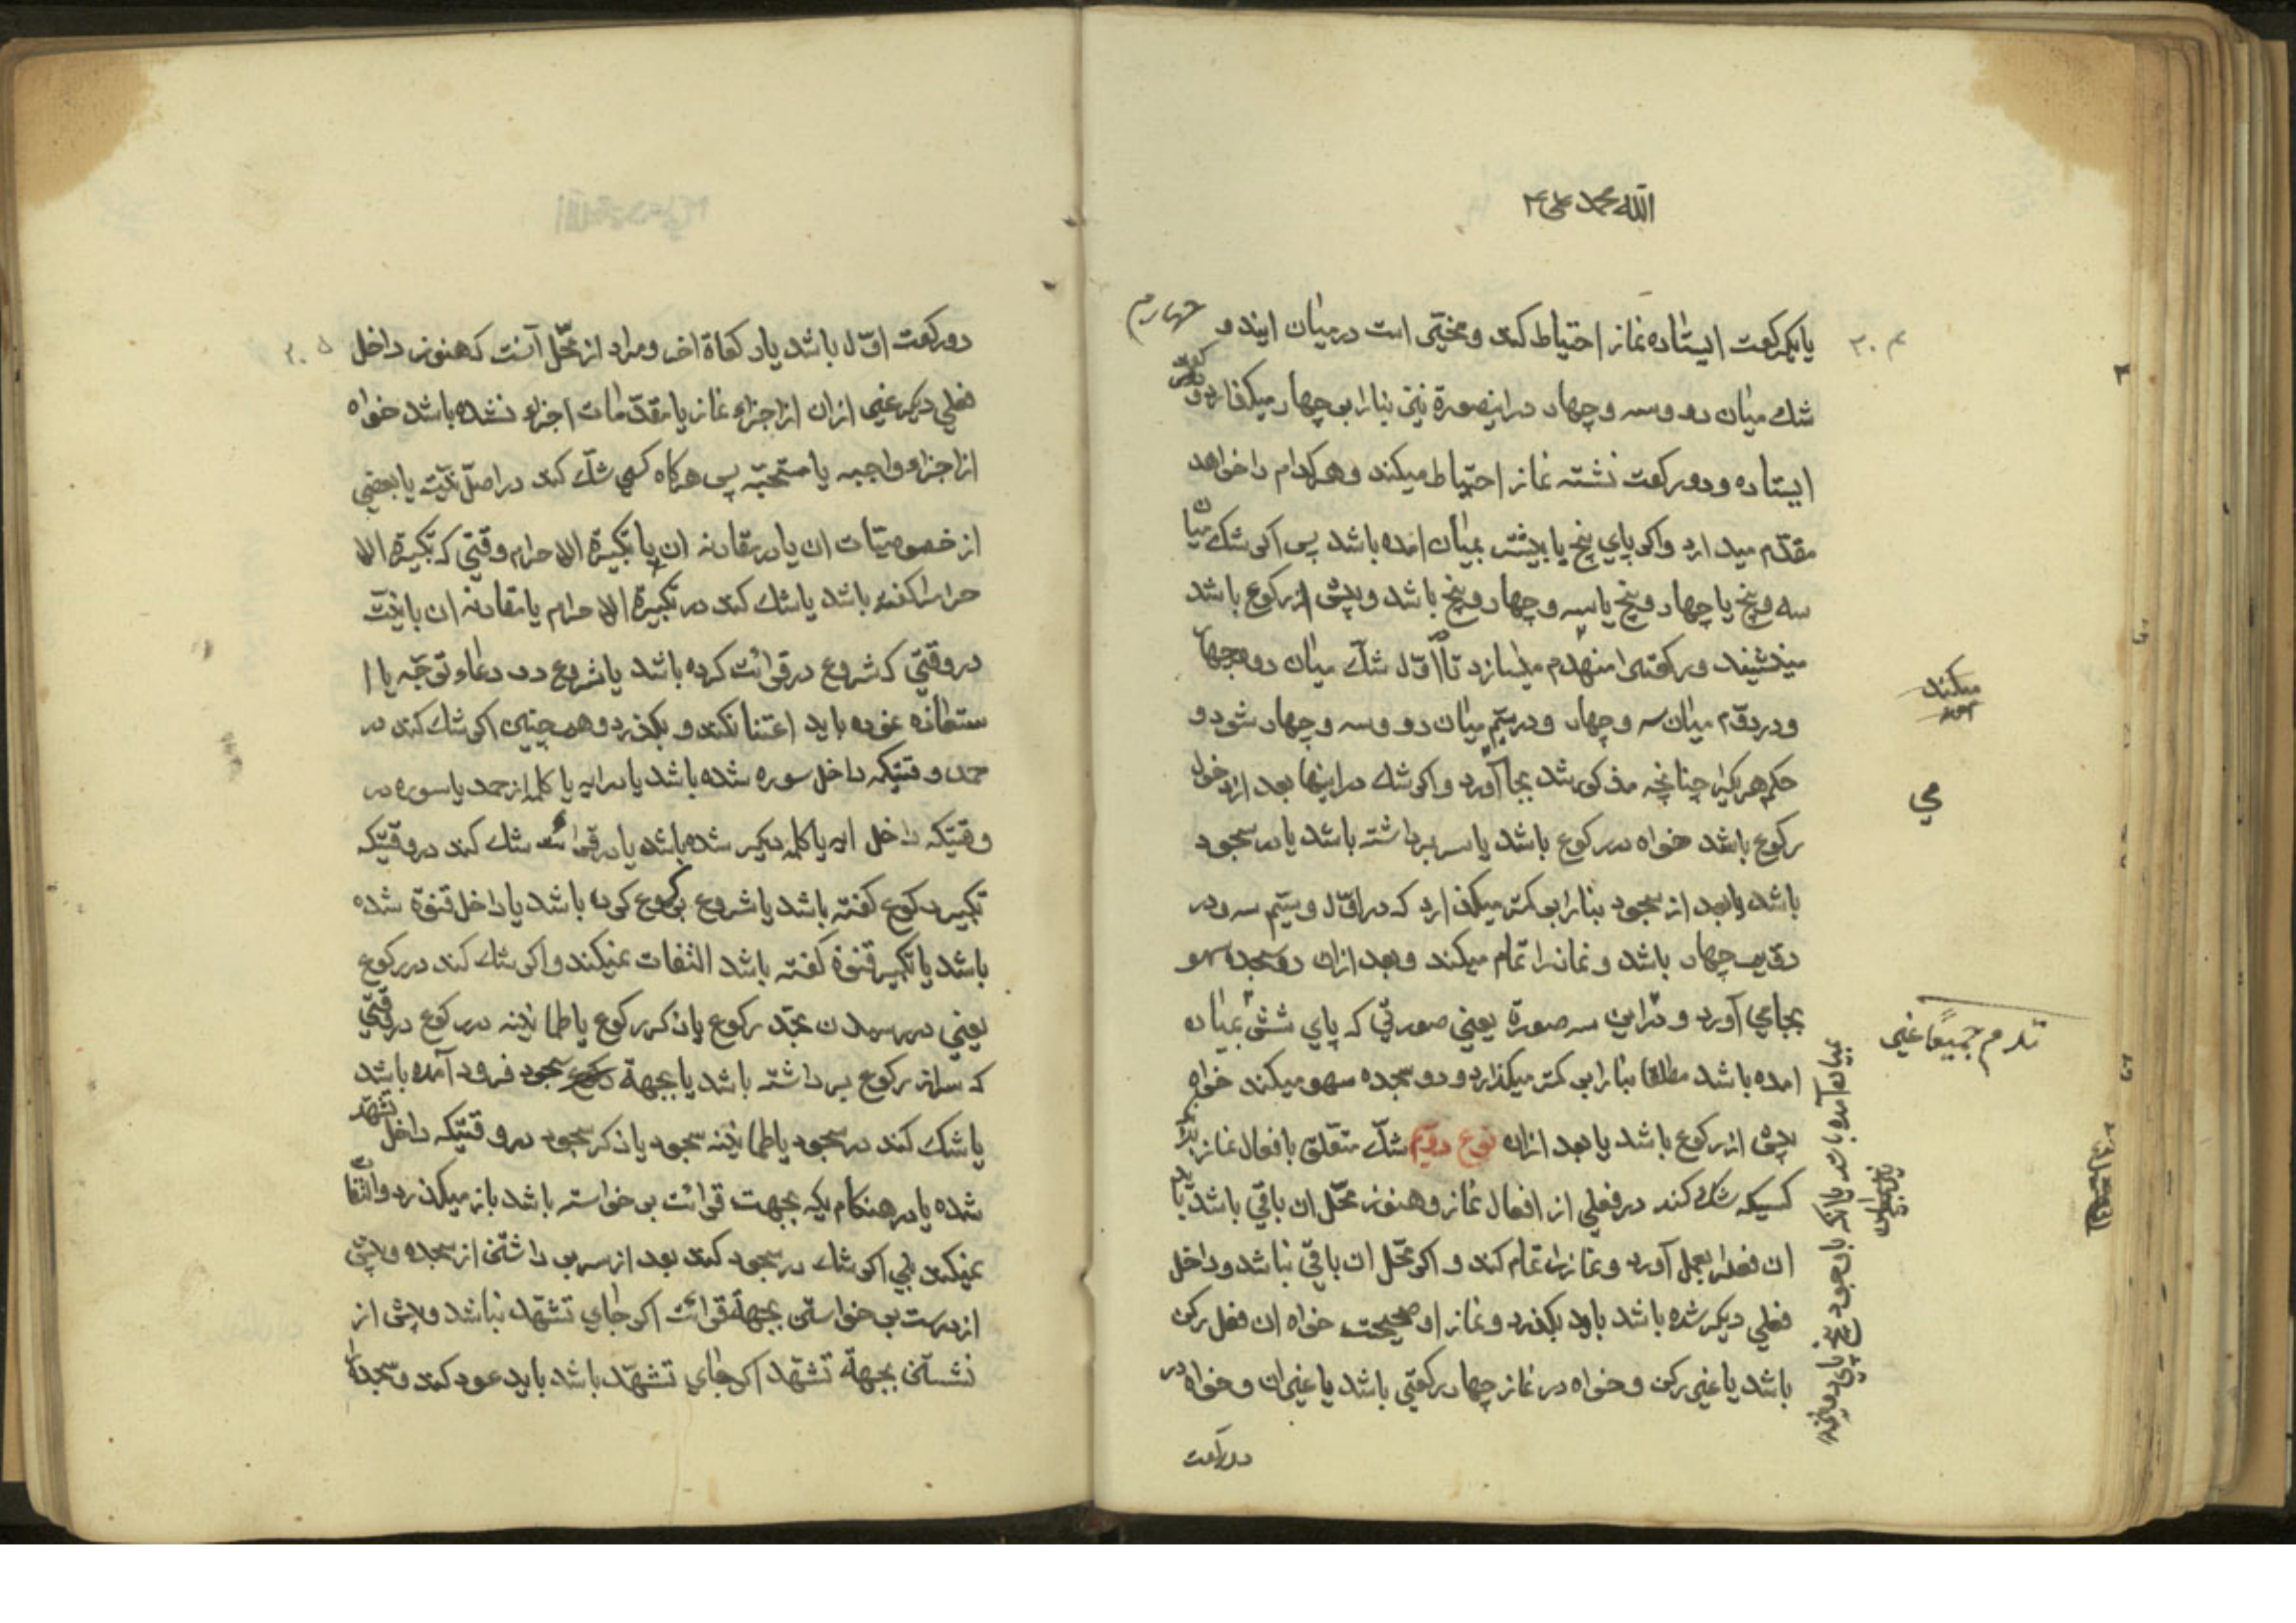 الله محمد علی
یا یکرکعت ایستاده نماز احتیاط کند و مخیّر است در میان ایندو چهارم
شک میان دو و سه و چهار در اینصورة نیز بنا را بر چهار میکذارد و دو رکعت
ایستاده و دو رکعت نشسته نماز احتیاط میکند و هر کدام را خواهد
مقدّم میدارد و اکر پای پنج یا بیشتر بمیان امده باشد پس اکر شک میان
سه و پنج یا چهار و پنج یا سه و چهار و پنج باشد و پیش از رکوع باشد
مینشیند و رکعة را منهدم میسازد تا اوّل شکّ میان دو و چهار
و در دوّم میان سه و چهار و در سیّم میان دو و سه و چهار شود و
حکم هر یکرا چنانچه مذکور شد بجا آورد و اکر شک در اینها بعد از دخول
رکوع باشد خواه در رکوع باشد یا سر برداشته باشد یا در سجود
باشد یا بعد از سجود بنا را بر کمتر میکذارد که در اوّل و سیّم سه و در
دوّیم چهار باشد و نماز را تمام میکند و بعد ازان دو سجده سهو
بجا می آورد و در این سه صورة یعنی صورتی که پای شش بمیان
امده باشد مطلقا بنا را بر کمتر میکذارد و دو سجده سهو میکند خواه
پیش از رکوع باشد یا بعد ازان نوع دویّم شکّ متعلق بافعال نماز
کسیکه شک کند در فعلی از افعال نماز و هنوز محّل ان باقی باشد باید
ان فعلرا بعمل آورد و نماز را تمام کند و اکر محّل ان باقی نباشد و داخل
فعلی دیکر شده باشد باید بکذرد و نماز او صحیحست خواه ان فعل رکن
باشد یا غیر رکن و خواه در نماز چهار رکعتی باشد یا غیر ان و خواه در
دو رکعت
میکند
می
دو رکعت اوّل باشد یا رکعاة اخر و مراد از محّل آنست که هنوز داخل
فعلی دیکر غیر ازان از اجزاء نماز یا مقدّمات اجزاء نشده باشد خواه
از اجزاء واجبه یا مستحبّه پس هرکاه کسی شکّ کند در اصل نیّت یا بعضی
از خصوصیّات ان یا در مقارنه ان با تکبیرة الاحرام وقتی که تکبیرة الا
حرام را کفته باشد یا شک کند در تکبیرة الاحرام یا مقارنه ان با نیّت
در وقتی که شروع در قرائت کرده باشد یا شروع در دعاء توجّه یا ا
ستعاذه نموده باید اعتنا نکند و بکذرد و همچنین اکر شک کند در
حمد وقتیکه داخل سوره شده باشد یا در ایه یا کلمه از حمد یا سوره در
وقتیکه داخل ایه یا کلمه دیکر شده باشد یا در قرائت شک کند در وقتیکه
تکبیر رکوع کفته باشد یا شروع برکوع کرده باشد یا داخل قنوة شده
باشد یا تکبیر قنوة کفته باشد التفات نمیکند و اکر شک کند در رکوع
یعنی در رسیدن بحّد رکوع یا ذکر رکوع یا طمانینه در رکوع در وقتی
که سر از رکوع برداشته باشد یا بجهة سجود فرود آمده باشد
یا شک کند در سجود یا طمانینه سجود یا ذکر سجود در وقتیکه داخل تشهّد
شده یا در هنکام یکه بجهت قرائت بر خواسته باشد باز میکذرد و التفات
نمیکند بلی اکر شک در سجود کند بعد از سر بر داشتن از سجده و پیش
از درست بر خواستن بجهة قرائت اکر جای تشهّد نباشد و پیش از
نشستن بجهة تشهّد اکر جای تشهّد باشد باید عود کند و سجده